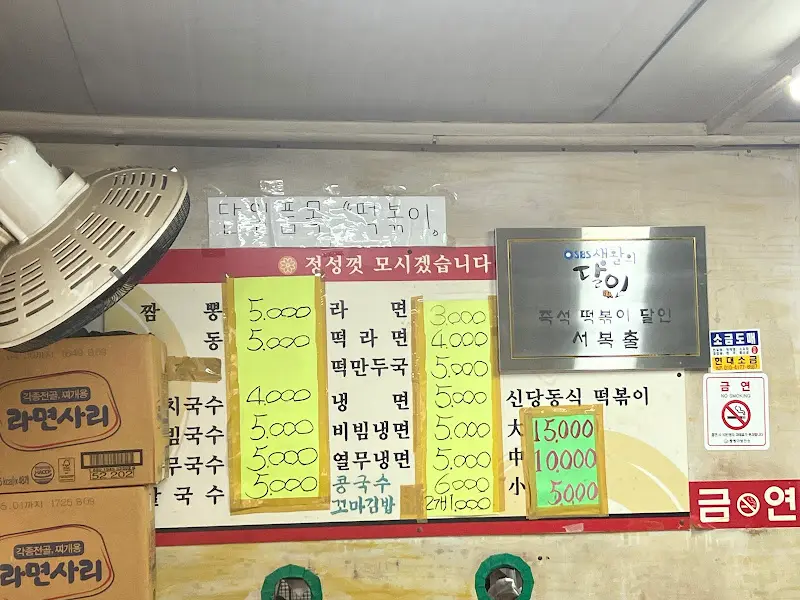 달인 품목 "떡볶이"
정성껏 모시겠습니다
짬 뽕 5.000
동 5.000
치국수 4.000
빔국수 5.000
무국수 5.000
칼국수 5.000
라 면 3.000
떡라면 4.000
떡만두국 5.000
냉 면 5.000
비빔냉면 5.000
열무냉면 5.000
콩국수 6.000
꼬마김밥 2개1000
SBS 생활의
달인
즉석 떡볶이 달인
서복출
신당동식 떡볶이
大 15,000
中 10,000
小 5000
소금도매
현대소금
금 연
NO SMOKING
금 연
각종전골, 찌개용
라면사리
52,202
각종전골, 찌개용
라면사리